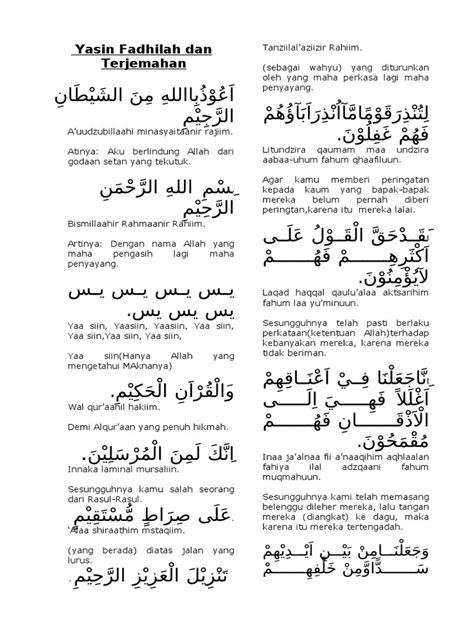 Yasin Fadhilah dan
Terjemahan
اَعُوْذُبِااللهِ مِنَ الشَّيْطَانِ
الرَّجِيْمِ
A'uudzubillaahi minasyaitaanir rajiim.
Atinya: Aku berlindung Allah dari
godaan setan yang tekutuk.
بِسْمِ اللهِ الرَّحْمَنِ
الرَّحِيْمِ
Bismillaahir Rahmaanir Rahiim.
Artinya: Dengan nama Allah yang
maha pengasih lagi maha
penyayang.
يــس يــس يــس
يس يس يس.
Yaa siin, Yaasiin, Yaasiin, Yaa siin,
Yaa siin,Yaa siin, Yaa siin,
Yaa siin(Hanya Allah yang
mengetahui MAknanya)
وَالْقُرْاَنِ الْحَكِيْمِ.
Wal qur'aanil hakiim.
Demi Alqur'aan yang penuh hikmah.
اِنَّكَ لَمِنَ الْمُرْسَلِيْنَ.
Innaka laminal mursaliin.
Sesungguhnya kamu salah seorang
dari Rasul-Rasul.
عَلَى صِرَاطٍ مُّسْتَقِيْمٍ.
'Alaa shiraathim mstaqiim.
(yang berada) diatas jalan yang
lurus.
تَنْزِيْلَ الْعَزِيْزِ الرَّحِيْمِ.
Tanziilal'aziizir Rahiim.
(sebagai wahyu) yang diturunkan
oleh yang maha perkasa lagi maha
penyayang.
لِتُنْذِرَقَوْمًامَّآاُنْذِرَاَبَآؤُهُمْ
فَهُمْ غَفِلُوْنَ.
Litundzira qaumam maa undzira
aabaa-uhum fahum qhaafiluun.
Agar kamu memberi peringatan
kepada kaum yang bapak-bapak
mereka belum pernah diberi
peringtan,karena itu mereka lalai.
لَقَدْحَقَّ الْقَــوْلُ عَلَــى
اَكْثَرِهِــــمْ فَهُــــمْ
لاَيُؤْمِنُوْنَ.
Laqad haqqal qaulu'alaa aktsarihim
fahum laa yu'minuun.
Sesungguhnya telah pasti berlaku
perkataan(ketentuan Allah)terhadap
kebanyakan mereka, karena mereka
tidak beriman.
اِنَّاجَعَلْنَا فِــيْ اَعْنَــاقِهِمْ
اَغْلَلاً فَهِــــيَ اِلَــــى
الْاَذْقَــــانِ فَهُــــمْ
مُقْمَحُوْنَ.
Inaa ja'alnaa fii a'naaqihim aqhlaalan
fahiya ilal adzqaani fahum
muqmahuun.
Sesungguhnya kami telah memasang
belenggu dileher mereka, lalu tangan
mereka (diangkat) ke dagu, maka
karena itu mereka tertengadah.
وَجَعَلْنَــامِنْ بَيْــنِ اَيْــدِيْهِمْ
ســــَدًّاوَّمِنْ خَلْفِهِــــمْ